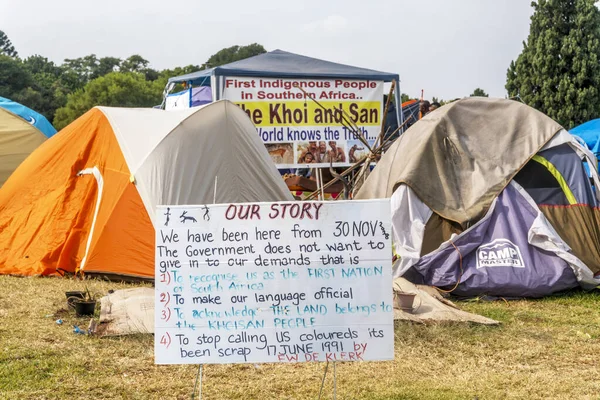 First Indigenous People
in Southern Africa..
The Khoi and San
World knows the Truth...
OUR STORY
We have been here from 30 NOV
The Government does not want to
give in to our demands that is
1) To recognise us as the FIRST NATION
of South Africa
2) To make our language official
3) To acknowledge THE LAND belongs to
the KHOISAN PEOPLE
4) To stop calling US coloureds its
been scrap 17 JUNE 1991 by
FW DE KLERK
CAMP
MASTER